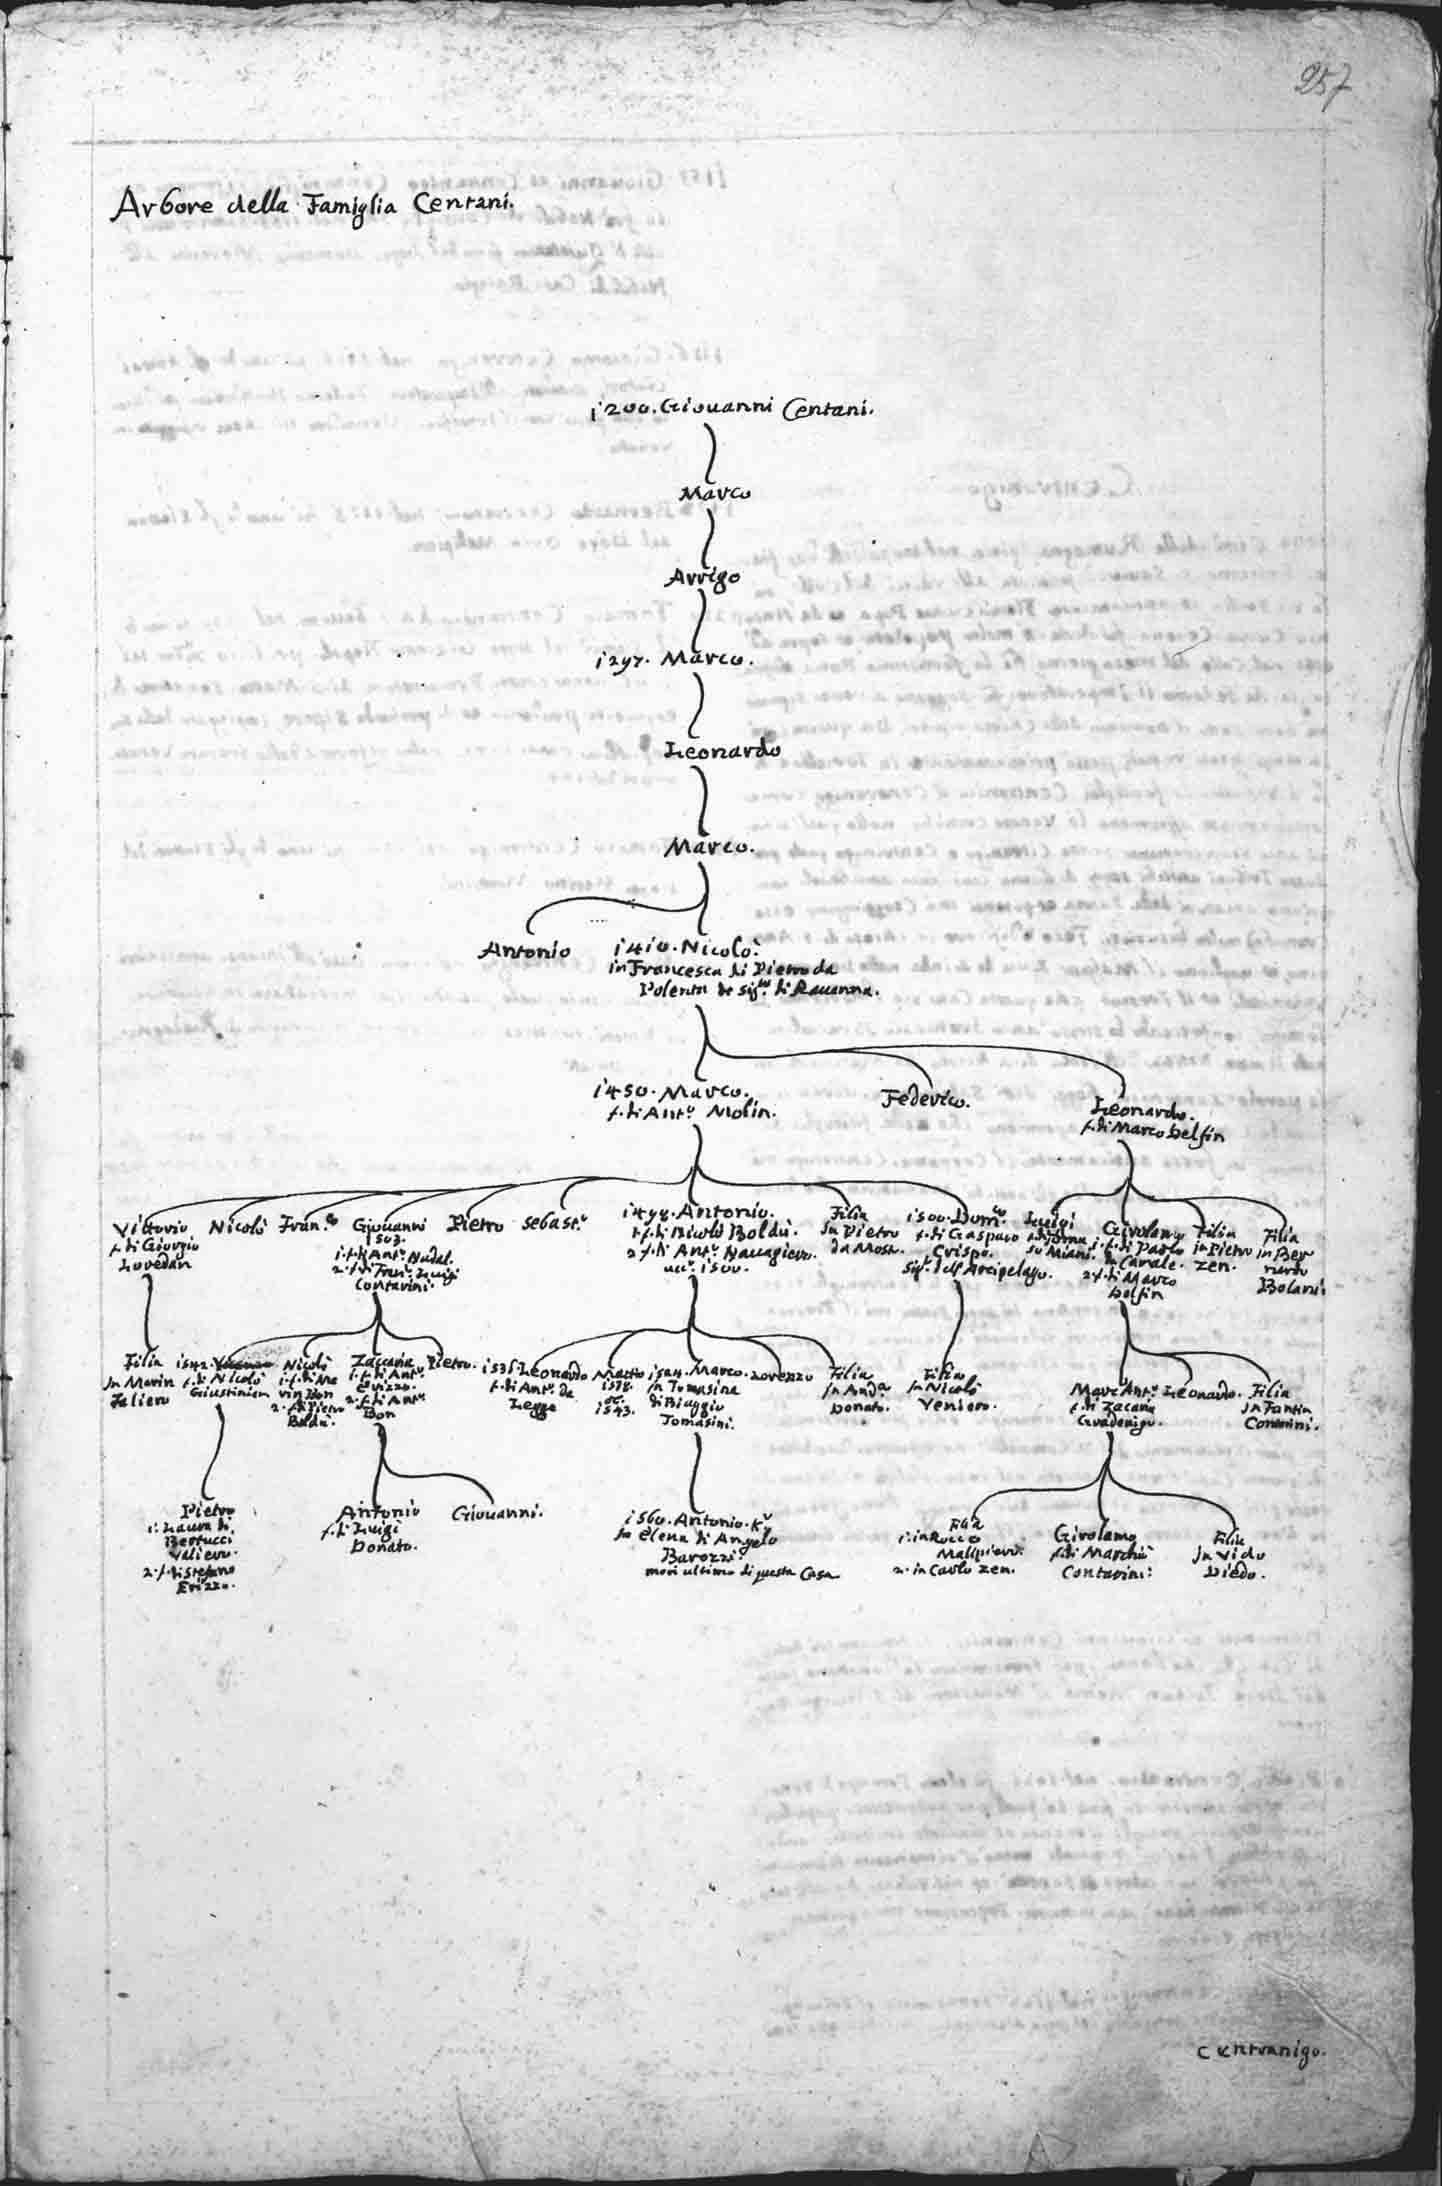 257
Arbore della Famiglia Centani.
1200. Giouanni Centani.
Marco
Arrigo
1297. Marco.
Leonardo
Marco.
Antonio
1410. Nicolò.
in Francesca di Pietro da
Polenta de Sig.ri di Rauenna.
1450. Marco.
f. di Ant.o Molin.
Federico.
Leonardo.
f. di Marco Delfin
Vittorio
f. di Giorgio
Loredan
Nicolò
Fran.co
Giouanni
1503.
1. f. di Ant.o Nadal.
2. f. di Fran.o Luigi
Contarini.
Pietro
Sebast.o
1498. Antonio.
1. f. di Nicolò Boldù.
2. f. di Ant.o Nauagiero.
1500.
Filia
In Pietro
da Mosto.
1500. Dom.co
f. di Gasparo
Crispo.
Sig.r dell'Arcipelago.
Luigi
so Miani
Girolamo
1. f. di Paolo
da Canale.
2. f. di Marco
Dolfin
Filia
in Pietro
Zen.
Filia
in Ber
nardo
Bolani.
Filia
In Marin
Faliero
1542.
f. di Nicolò
Giustinian
Nicolò
1. f. di Ma
rin Bon
2. f. di Pietro
Boldù.
Zaccaria
1. f. di Ant.o
Erizzo.
2. f. di Ant.o
Bon
Pietro.
1535. Leonardo
f. di Ant.o da
Legge
1543.
1524. Marco.
in Tomasina
di Biaggio
Tomasini.
Lorenzo
Filia
In And.a
Donato.
Filia
In Nicolò
Veniero.
Marc'Ant.o
f. di Zacaria
Gradenigo.
Leonardo.
Filia
In Fantin
Contarini.
Pietro
1. Laura di
Bertucci
Valiero.
2. f. di Stefano
Erizzo.
Antonio
f. di Luigi
Donato.
Giouanni.
1560. Antonio K.r
In Elena di Angelo
Barozzi.
morì ultimo di questa Casa
Filia
1. in Rocco
Malipiero.
2. in Carlo Zen.
Girolamo
f. di Marchiò
Contarini.
Filia
In Vido
Diedo.
Centranigo.